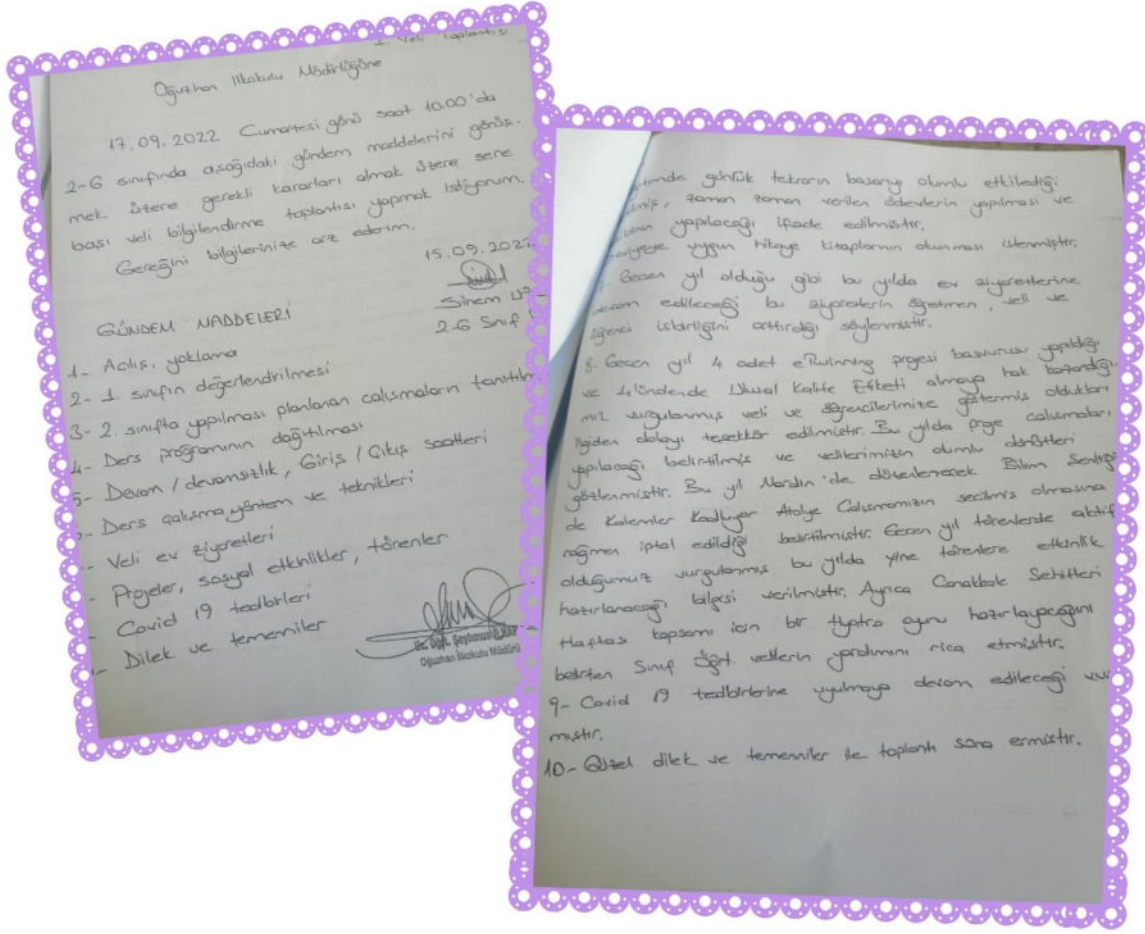 1. Veli Toplantısı
Oğuzhan İlkokulu Müdürlüğüne
17.09.2022 Cumartesi günü saat 10.00'da
2-G sınıfında aşağıdaki gündem maddelerini görüş-
mek üzere gerekli kararları almak üzere sene
başı veli bilgilendirme toplantısı yapmak istiyorum.
Gereğini bilgilerinize arz ederim.
15.09.2022
Sinem
2-G Sınıf
GÜNDEM MADDELERİ
1- Açılış, yoklama
2- 1. sınıfın değerlendirilmesi
3- 2. sınıfta yapılması planlanan çalışmaların
4- Ders programının dağıtılması
5- Devam / devamsızlık, Giriş / Çıkış saatleri
- Ders çalışma yöntem ve teknikleri
- Veli ev ziyaretleri
- Projeler, sosyal etkinlikler, törenler
- Covid 19 tedbirleri
- Dilek ve temenniler
Oğuzhan İlkokulu Müdürü
günlük tekrarın başarıyı olumlu etkilediği
zaman zaman verilen ödevlerin yapılması ve
yapılacağı ifade edilmiştir.
seviyeye uygun hikaye kitaplarının okunması istenmiştir.
Geçen yıl olduğu gibi bu yılda ev ziyaretlerine
devam edileceği bu ziyaretlerin öğretmen, veli ve
öğrenci işbirliğini arttırdığı söylenmiştir.
8. Geçen yıl 4 adet eTwinning projesi başvurusu yapıldığı
ve 4'ündende Ulusal Kalite Etiketi almaya hak kazandığı
mız vurgulanmış veli ve öğrencilerimize göstermiş oldukları
ilgiden dolayı teşekkür edilmiştir. Bu yılda proje çalışmaları
yapılacağı belirtilmiş ve velilerimizin olumlu dönütleri
gözlenmiştir. Bu yıl Mardin'de düzenlenecek Bilim Şenliği
de Kalemler Kodluyor Atölye Çalışmamızın seçilmiş olmasına
rağmen iptal edildiği belirtilmiştir. Geçen yıl törenlerde aktif
olduğumuz vurgulanmış bu yılda yine törenlere etkinlik
hazırlanacağı bilgisi verilmiştir. Ayrıca Çanakkale Şehitleri
Haftası kapsamı için bir tiyatro oyunu hazırlayacağını
belirten Sınıf Öğrt. velilerin yardımını rica etmiştir.
9- Covid 19 tedbirlerine uyulmaya devam edileceği vur
mıştır.
10- Güzel dilek ve temenniler ile toplantı sona ermiştir.